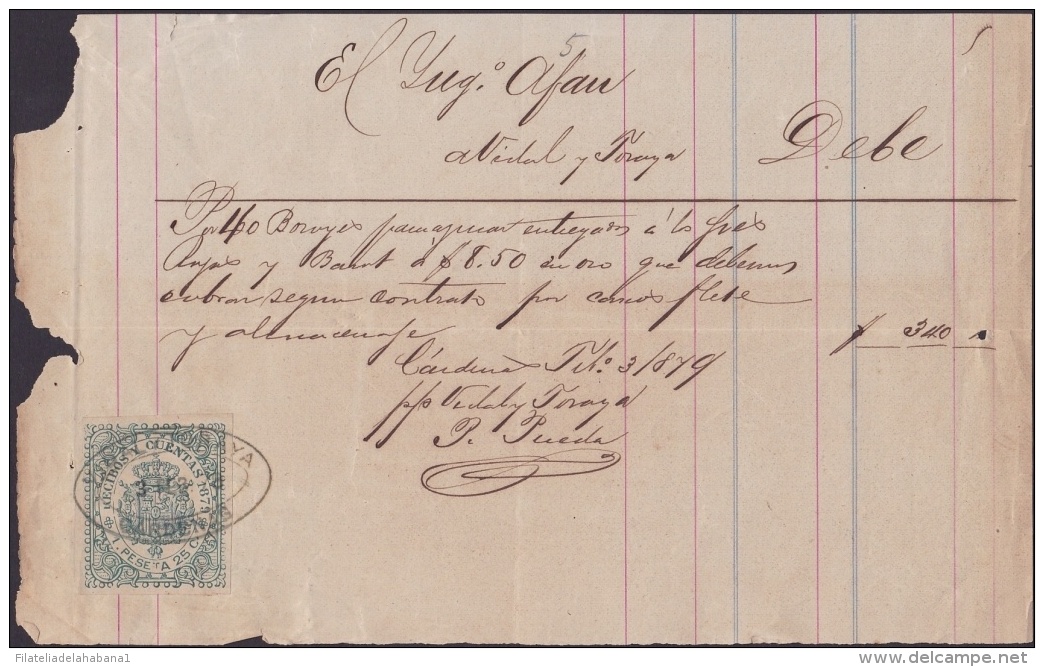 5
El Yng.º Afan
a Vidal y Toraya Debe
Por 40 Bocoyes para entregados á los Sres
y á $ 8.50 en oro que debemos
cobrar segun contrato por casco flete
y almacenaje $ 340
Cárdenas 3/879
pp Vidal y Toraya
P. Pueda
RECIBOS Y CUENTAS 1879
CARDEN
1. PESETA 25 C.
Filateliadelahabana1
delcampe.net